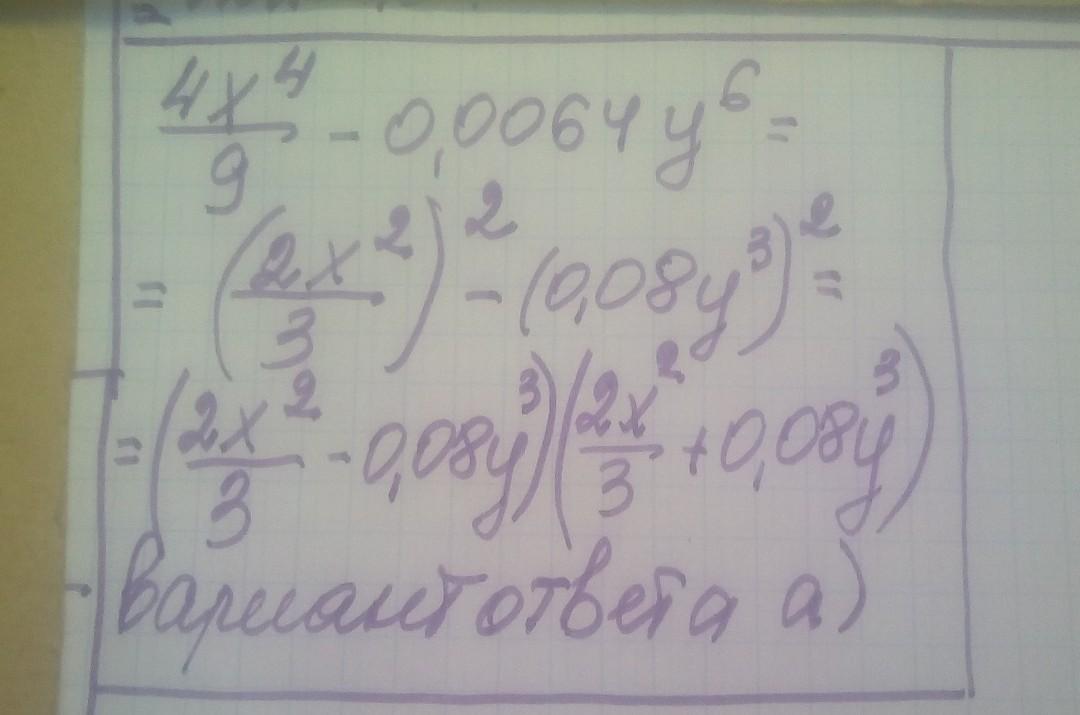 4x⁴/9 - 0,0064y⁶ =
= (2x²/3)² - (0,08y³)² =
= (2x²/3 - 0,08y³)(2x²/3 + 0,08y³)
Вариант ответа а)